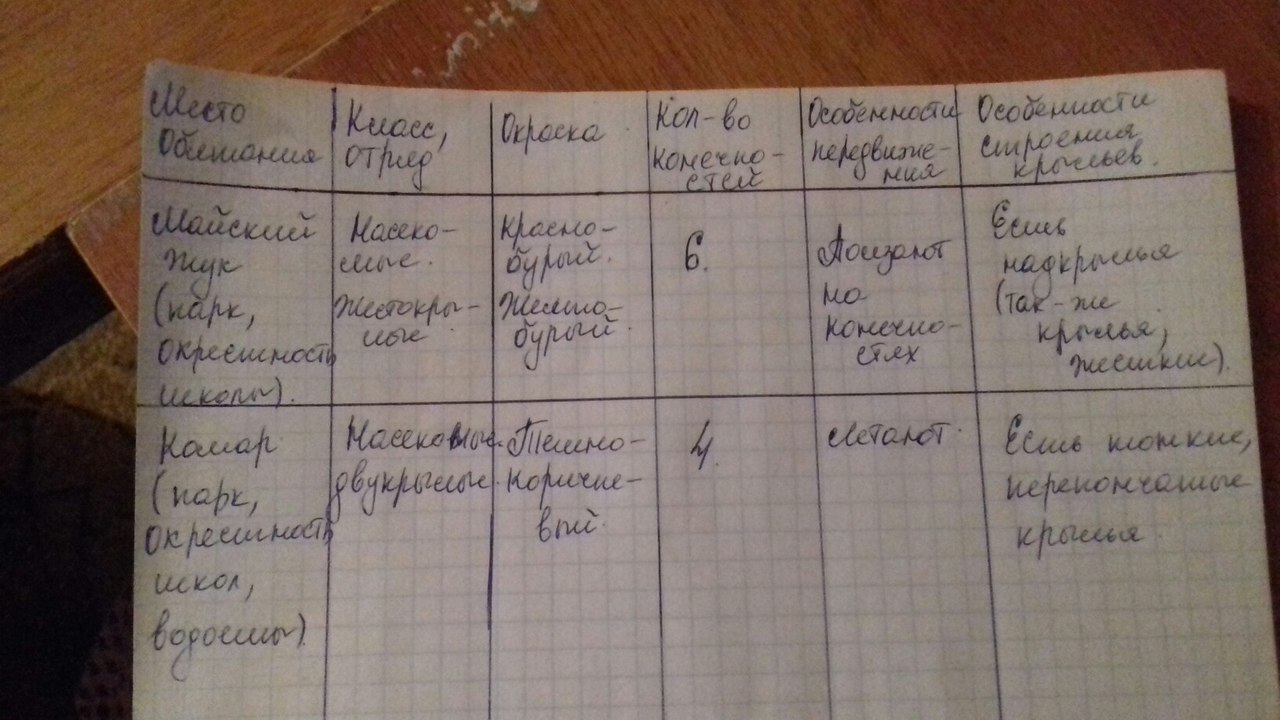 Место
Обитания
Класс,
отряд
Окраска
Кол-во
конечно-
стей
Особенности
передвиже-
ния
Особенности
строения
крыльев.
Майский
жук
(парк,
окрестность
школы).
Насеко-
мые.
Жестокры-
лые
красно-
бурый.
Желто-
бурый.
6.
Ползают
на
конечно-
стях
Есть
надкрылья
(так-же
крылья,
жесткие).
Комар
(парк,
окрестность
школ,
водоемы)
Насекомые.
двукрылые.
Темно-
коричне-
вый.
4.
Летают.
Есть тонкие,
перепончатые
крылья.